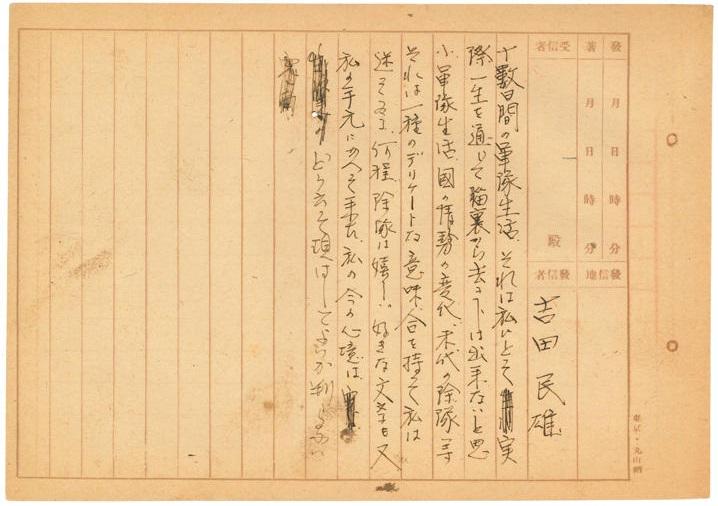 發 月 日 時 分
著 月 日 時 分
受信者
殿
發信地
發信者
吉田民雄
十数日間の軍隊生活、それは私にとって実
際一生を通じて脳裏から去る事は出来ないと思
ふ。軍隊生活、國の情勢の変化、末代の除隊、等
それは一種のデリケートな意味合を持って私は
迷って居る。何程、除隊は嬉しい。好きな文学も又
私の手元にかへって来た。私の今の心境は、
どう云って現はしてよいか判らない
東京・丸山納